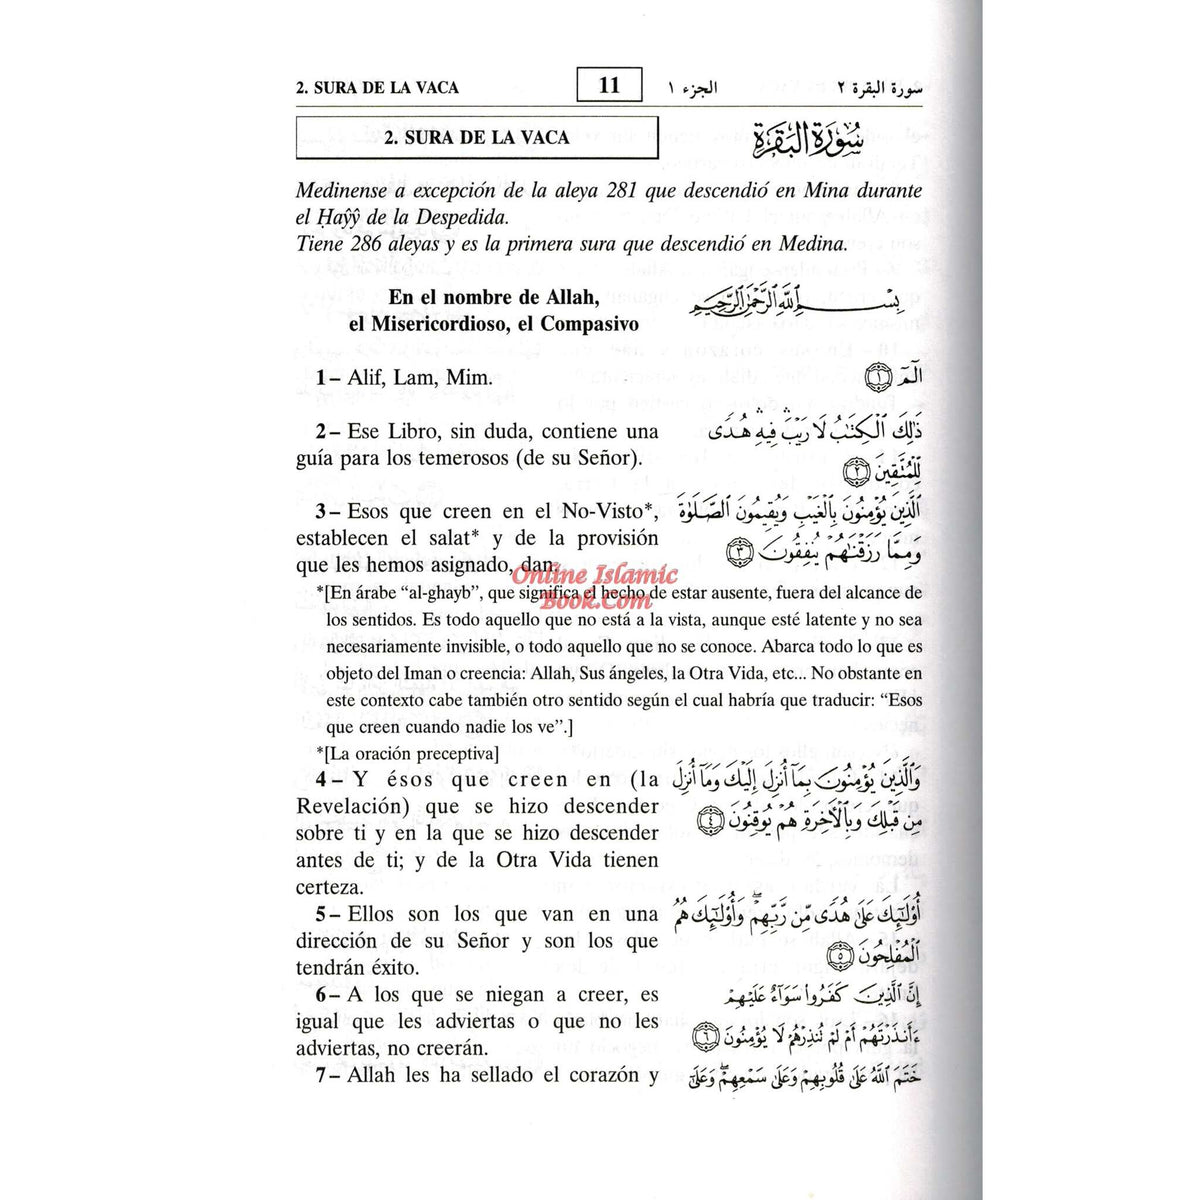 2. SURA DE LA VACA 11 الجزء ١ سورة البقرة ٢
2. SURA DE LA VACA سُورَةُ البَقَرَةِ
Medinense a excepción de la aleya 281 que descendió en Mina durante
el Ḥaŷŷ de la Despedida.
Tiene 286 aleyas y es la primera sura que descendió en Medina.
En el nombre de Allah,
el Misericordioso, el Compasivo
بِسْمِ اللَّهِ الرَّحْمَٰنِ الرَّحِيمِ
1– Alif, Lam, Mim.
الٓمٓ ١
2– Ese Libro, sin duda, contiene una
guía para los temerosos (de su Señor).
ذَٰلِكَ ٱلْكِتَٰبُ لَا رَيْبَ ۛ فِيهِ ۛ هُدًى
لِّلْمُتَّقِينَ ٢
3– Esos que creen en el No-Visto*,
establecen el salat* y de la provisión
que les hemos asignado, dan.
ٱلَّذِينَ يُؤْمِنُونَ بِٱلْغَيْبِ وَيُقِيمُونَ ٱلصَّلَوٰةَ
وَمِمَّا رَزَقْنَٰهُمْ يُنفِقُونَ ٣
Online Islamic
Book.Com
*[En árabe “al-ghayb”, que significa el hecho de estar ausente, fuera del alcance de
los sentidos. Es todo aquello que no está a la vista, aunque esté latente y no sea
necesariamente invisible, o todo aquello que no se conoce. Abarca todo lo que es
objeto del Iman o creencia: Allah, Sus ángeles, la Otra Vida, etc... No obstante en
este contexto cabe también otro sentido según el cual habría que traducir: “Esos
que creen cuando nadie los ve”.]
*[La oración preceptiva]
4– Y ésos que creen en (la
Revelación) que se hizo descender
sobre ti y en la que se hizo descender
antes de ti; y de la Otra Vida tienen
certeza.
وَٱلَّذِينَ يُؤْمِنُونَ بِمَآ أُنزِلَ إِلَيْكَ وَمَآ أُنزِلَ
مِن قَبْلِكَ وَبِٱلْءَاخِرَةِ هُمْ يُوقِنُونَ ٤
5– Ellos son los que van en una
dirección de su Señor y son los que
tendrán éxito.
أُو۟لَٰٓئِكَ عَلَىٰ هُدًى مِّن رَّبِّهِمْ ۖ وَأُو۟لَٰٓئِكَ هُمُ
ٱلْمُفْلِحُونَ ٥
6– A los que se niegan a creer, es
igual que les adviertas o que no les
adviertas, no creerán.
إِنَّ ٱلَّذِينَ كَفَرُوا۟ سَوَآءٌ عَلَيْهِمْ
ءَأَنذَرْتَهُمْ أَمْ لَمْ تُنذِرْهُمْ لَا يُؤْمِنُونَ ٦
7– Allah les ha sellado el corazón y
خَتَمَ ٱللَّهُ عَلَىٰ قُلُوبِهِمْ وَعَلَىٰ سَمْعِهِمْ ۖ وَعَلَىٰٓ